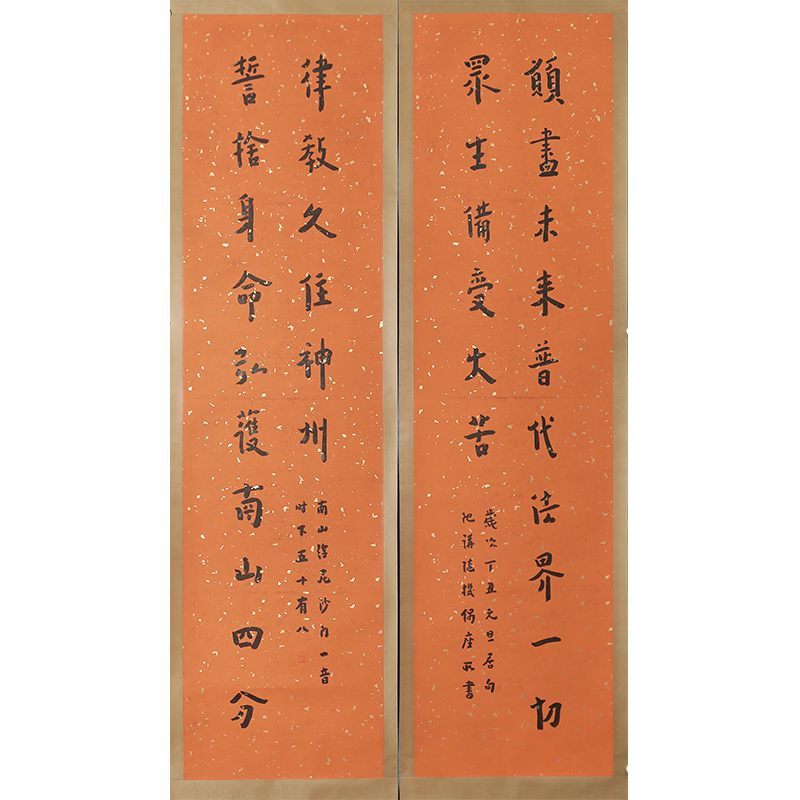 願盡未來普代法界一切
眾生備受大苦
歲次丁丑元旦居句
講 座所書
誓捨身命弘護南山四分
律教久住神州
南山律苑沙門一音
时年五十有八